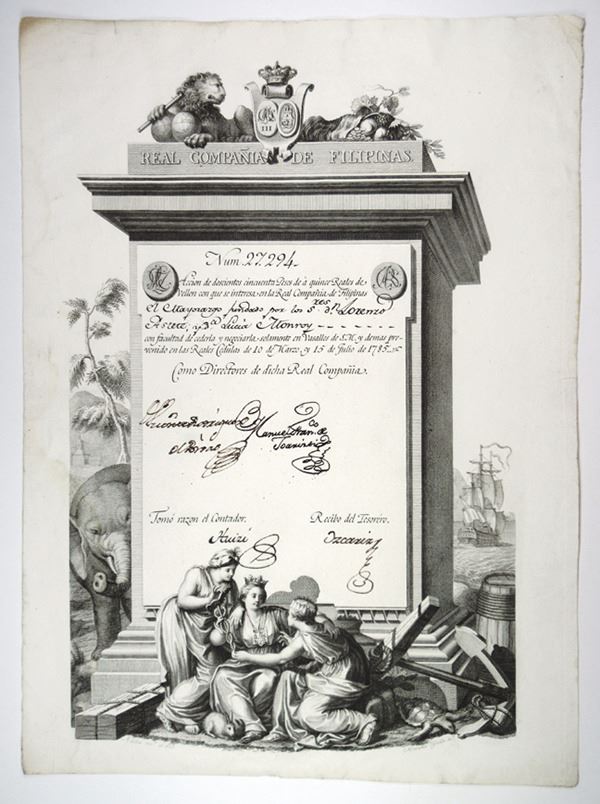 III
REAL COMPAÑIA DE FILIPINAS.
Num. 27.294
Accion de doscientos cincuenta Pesos de à quince Reales de
Vellon con que se interesa en la Real Compañia de Filipinas
el Mayorazgo fundado por los S.res D.n Lorenzo
Astete, y D.a Lucia Monroy
con facultad de cederla y negociarla solamente en Vasallos de S.M. y demas pre-
venido en las Reales Cédulas de 10 de Marzo y 15 de Julio de 1785.
Como Directores de dicha Real Compañia.
Manuel Fran.co de
Tomó razon el Contador. Recibo del Tesorero.